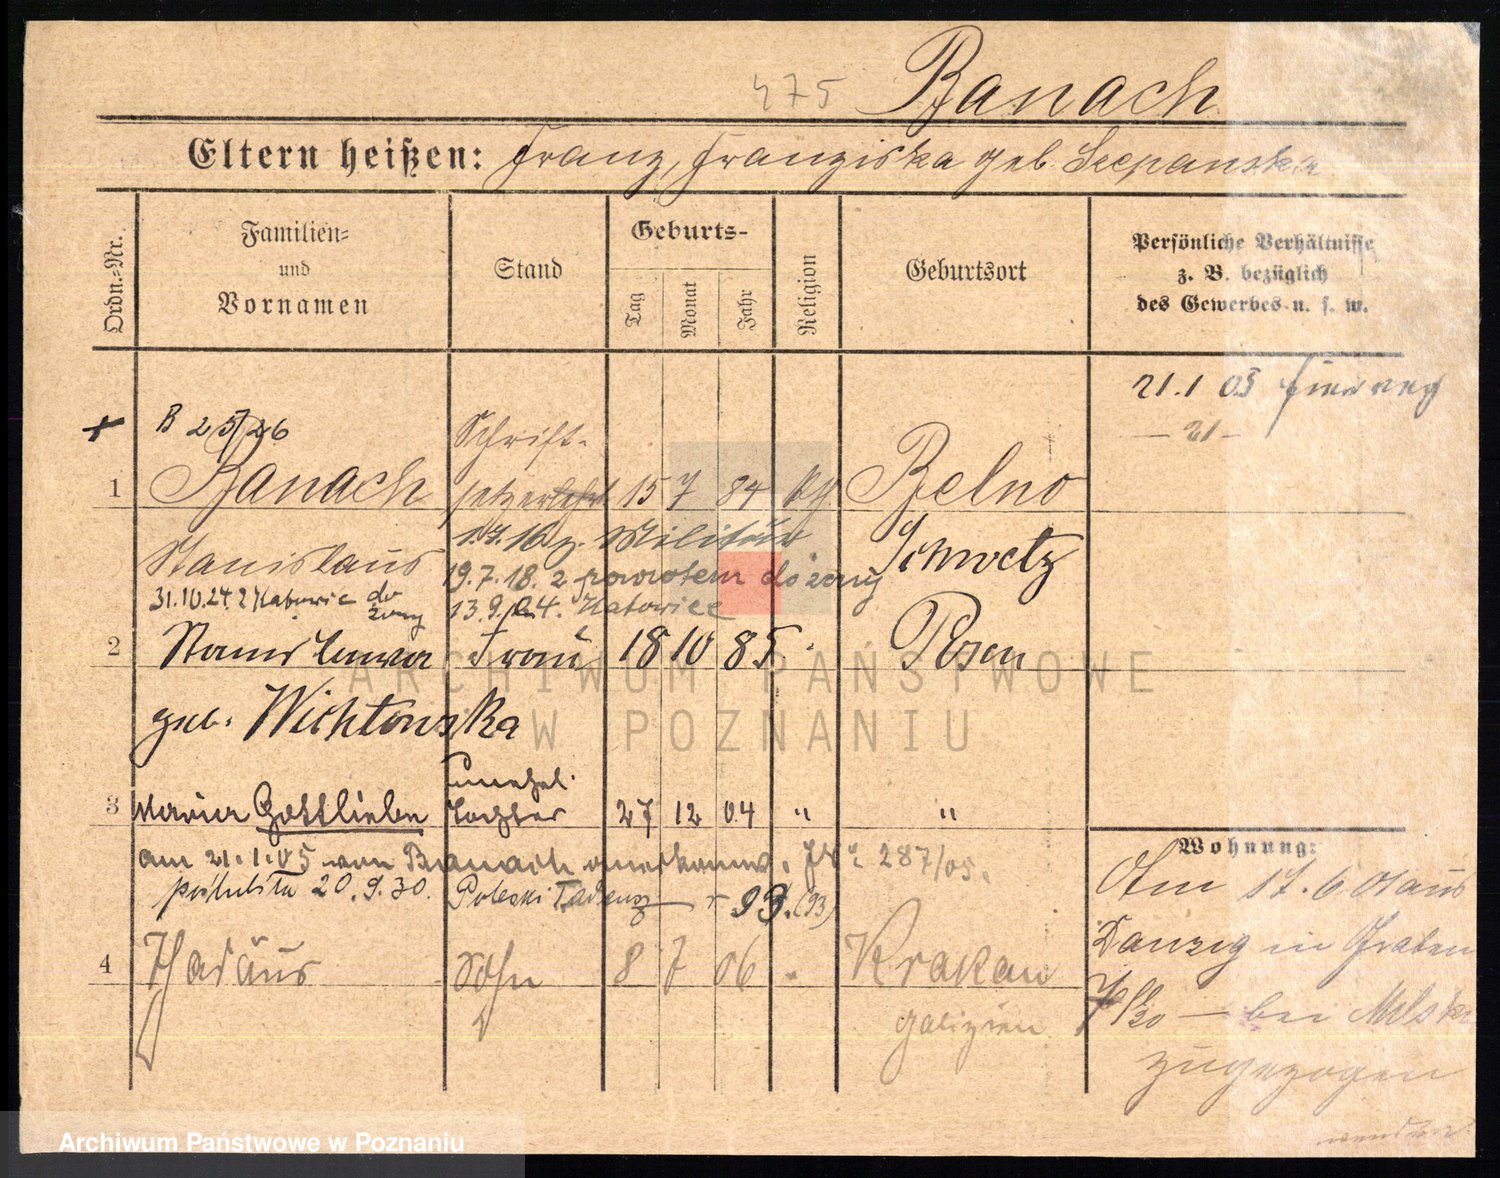 475 Banach
Eltern heißen: Franz, Franziska geb. Szepanska
Ordn.-Nr.
Familien- und Vornamen
Stand
Geburts-
Tag
Monat
Jahr
Religion
Geburtsort
Persönliche Verhältnisse
z. B. bezüglich
des Gewerbes u. s. w.
21.1 05
21
B 25/26
Schrift-
1 Banach setzer 15 7 84 Belno
1.7.16 z. Militär Schwetz
Stanislaus 19.7.18. z powrotem do żony
31.10.24 z Katowic do żony 13.9.24. Katowice
2 Stanislawa Frau 18 10 85 Posen
geb. Wichtowska
unehel.
3 Maria Gottlieben Tochter 27 12 04 " "
am 21.1.05 von Banach anerkannt. 287/05.
poślubiła 20.9.30. Poleski Tadeusz 93. (93)
4 Thadäus Sohn 8 7 06 Krakau
Galizien
Wohnung:
Am 17.6 01 aus
Danzig in Graben
bei
zugezogen
wenden
ARCHIWUM PAŃSTWOWE
W POZNANIU
Archiwum Państwowe w Poznaniu